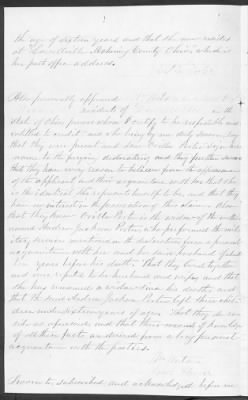 the age of sixteen years and that she now resides
at Lowellville Mahoning County Ohio which is
her post office address.
Also personally appeared
resident of in the
State of Ohio persons whom I certify to be respectable and
entitled to credit and who being by me duly sworn say
that they were present and saw Orilla Porter sign her
name to the foregoing declaration and they further swear
that they have every reason to believe from the appearance
of the applicant and their acquaintance with her that she
is the identical she represents herself to be and that they
have no interest in the prosecution of this claim. Also
that they know Orilla Porter is the widow of the
named Andrew Jackson Porter who performed the mili
tary service mentioned in the declaration from a personal
acquaintance with her and her late husband for
years before his death. That they lived together
and were reputed to be husband and wife and that
she has remained a widow since his death and
that the said Andrew Jackson Porter left three chil
dren under sixteen years of age. That they do
and their means of knowledge
of all these facts are derived from a long personal
acquaintance with the parties.
Sworn to subscribed and acknowledged before me